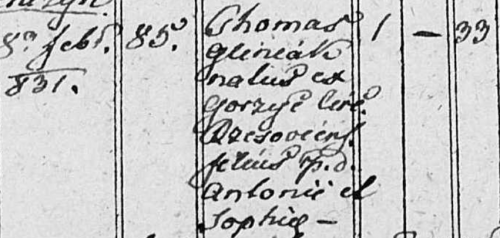 8ª febr. 85. Thomas 1 — 33
831. Gliniak
natus ex
Gorzyce circ.
Rzesoviens.
filius p. d.
Antonii et
Sophię —